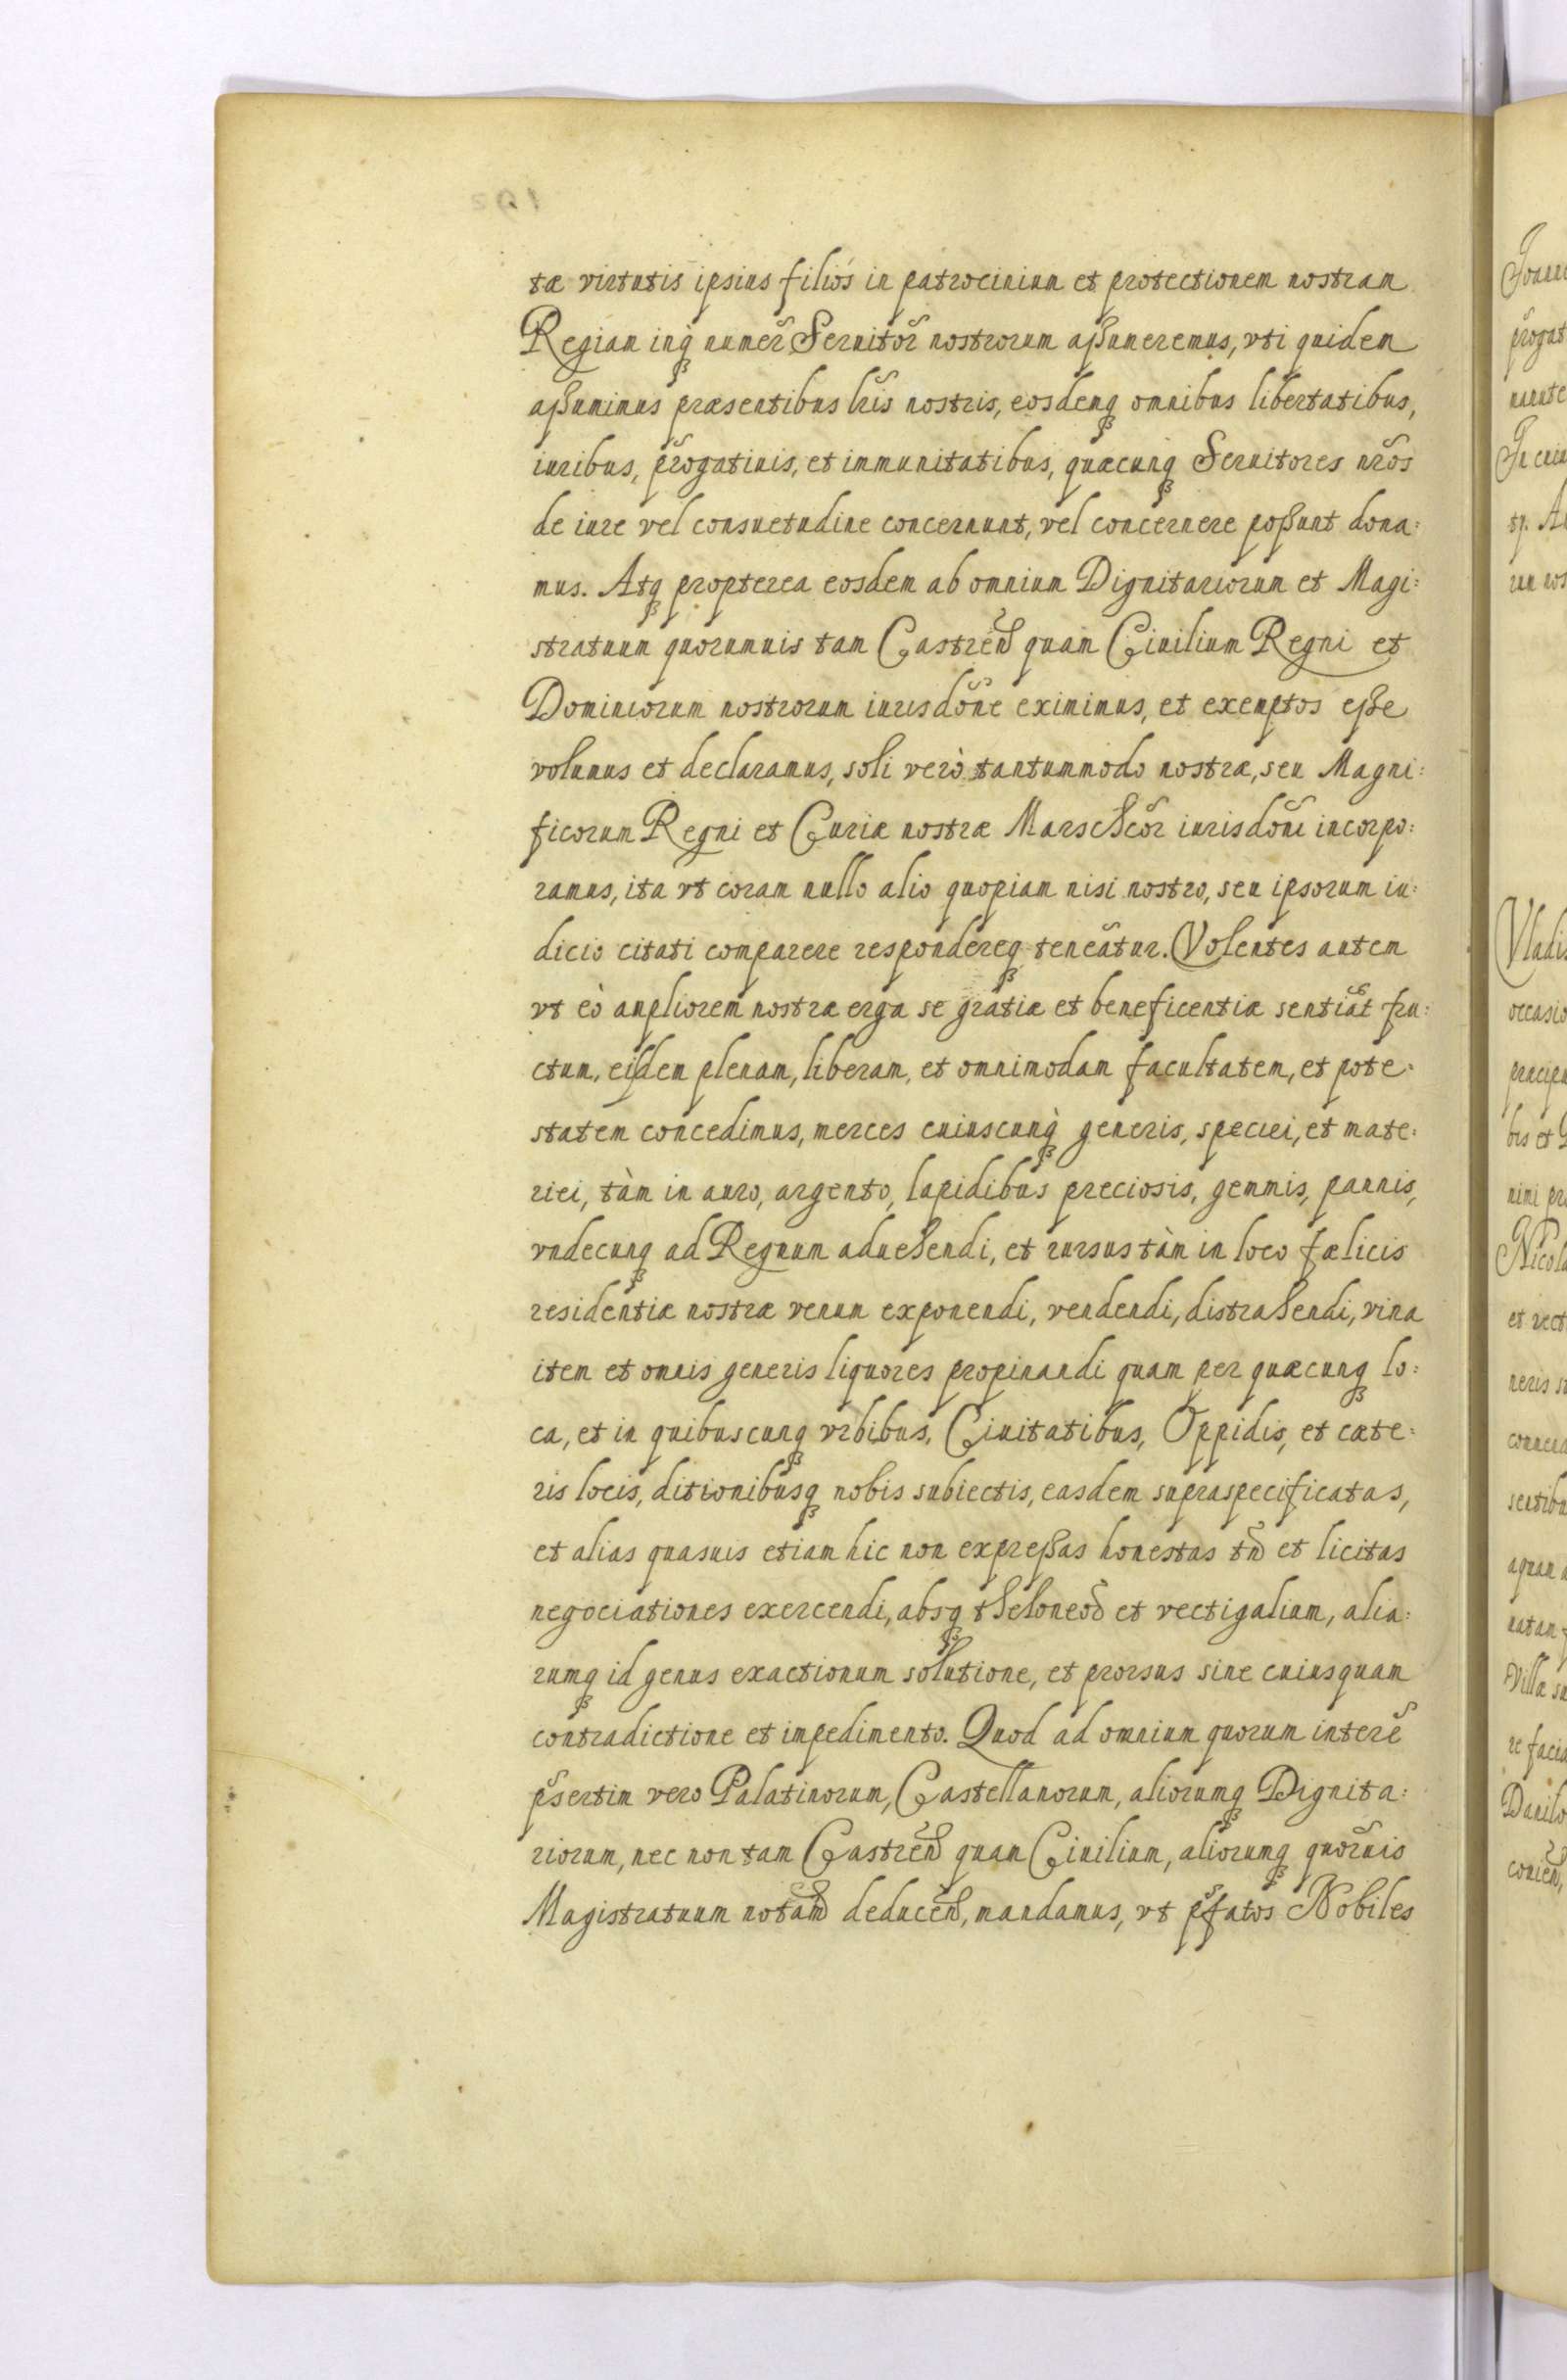 tæ virtutis ipsius filiós in patrocinium et protectionem nostram
Regiam inq́ꝫ numer̃ Seruitor̃ nostrorum aßumeremus, vti quidem
aßumimus præsentibus lr̃is nostris, eosdemqꝫ omnibus libertatibus,
iuribus, p̃rogatiuis, et immunitatibus, quæcunqꝫ Seruitores nr̃os
de iure vel consuetudine concernunt, vel concernere poßunt dona:
mus. Atqꝫ propterea eosdem ab omnium Dignitariorum et Magi:
stratuum quorumuis tam Castreñ quam Ciuilium Regni et
Dominiorum nostrorum iurisdõne eximimus, et exemptos eße
volumus et declaramus, soli verò tantummodo nostræ, seu Magni:
ficorum Regni et Curiæ nostræ Marschcor̃ iurisdõni incorpo:
ramus, ita vt coram nullo alio quopiam nisi nostro, seu ipsorum iu:
dicio citati comparere respondereqꝫ teneãtur. Volentes autem
vt eò ampliorem nostræ erga se gratiæ et beneficentiæ sentiãt fru:
ctum, eisdem plenam, liberam, et omnimodam facultatem, et pote:
statem concedimus, merces cuiuscunq̀ꝫ generis, speciei, et mate:
riei, tàm in auro, argento, lapidibus preciosis, gemmis, pannis,
vndecunqꝫ ad Regnum aduehendi, et rursus tàm in loco fælicis
residentiæ nostræ venum exponendi, vendendi, distrahendi, vina
item et omnis generis liquores propinandi quam per quæcunqꝫ lo:
ca, et in quibuscunqꝫ vrbibus, Ciuitatibus, Oppidis, et cæte:
ris locis, ditionibusqꝫ nobis subiectis, easdem supraspecificatas,
et alias quasuis etiam hic non expreßas honestas tñ et licitas
negociationes exercendi, absqꝫ theloneoꝝ et vectigalium, alia:
rumqꝫ id genus exactionum solutione, et prorsus sine cuiusquam
contradictione et impedimento. Quod ad omnium quorum interẽ
p̃sertim vero Palatinorum, Castellanorum, aliorumqꝫ Dignita:
riorum, nec non tam Castreñ quam Ciuilium, aliorumqꝫ quor̃uis
Magistratuum notam̃ deduceñ, mandamus, vt p̃fatos Nobiles